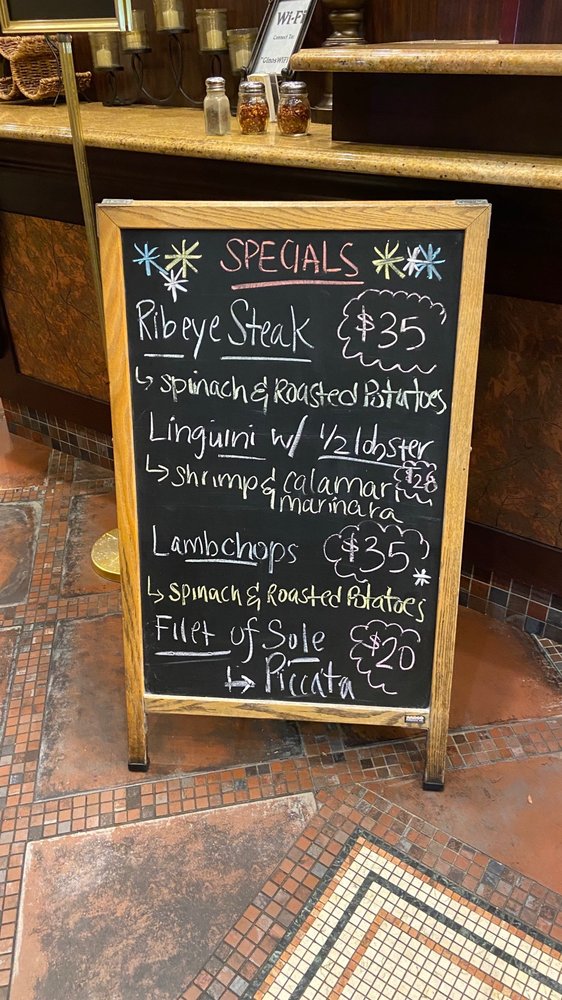 Wi-Fi
Connect To:
"GinosWIFI"
SPECIALS
Ribeye Steak $35
spinach & Roasted Potatoes
Linguini w/ 1/2 lobster
shrimp & calamari $28
marinara
Lambchops $35
spinach & Roasted Potatoes
Filet of Sole $20
Piccata